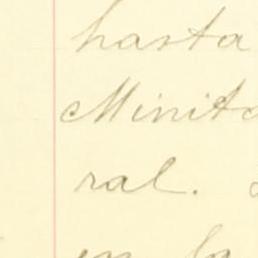 hasta
Minit
ral.
en la